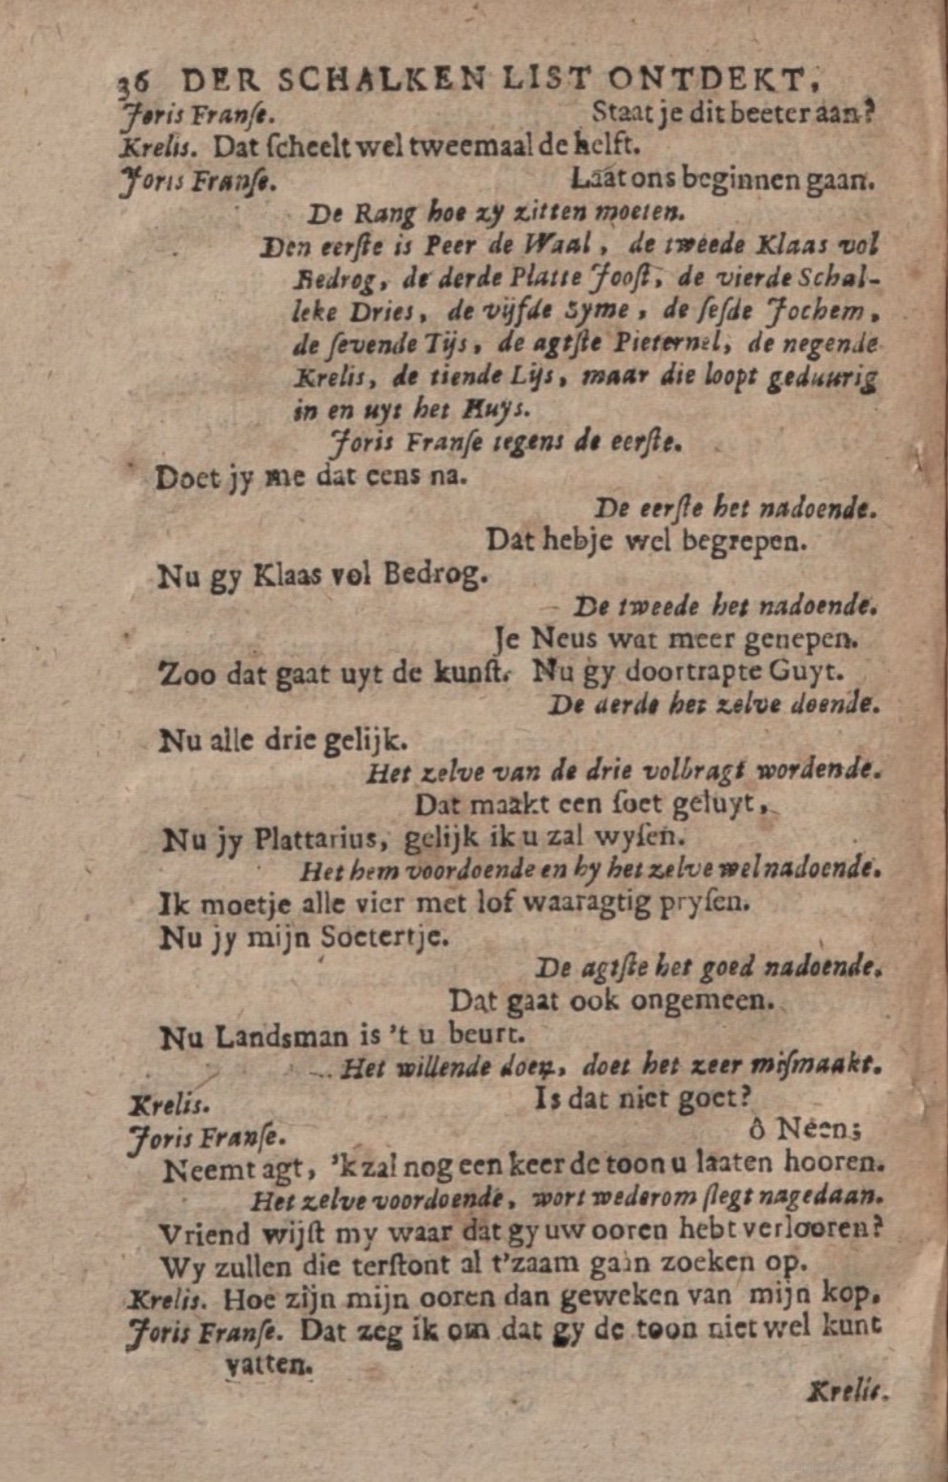 36 DER SCHALKEN LIST ONTDEKT,
Joris Franſe. Staat je dit beeter aan?
Krelis. Dat ſcheelt wel tweemaal de helft.
Joris Franſe. Laat ons beginnen gaan.
De Rang hoe zy zitten moeten.
Den eerſte is Peer de Waal, de tweede Klaas vol
Bedrog, de derde Platte Jooſt, de vierde Schal-
leke Dries, de vijfde Syme, de ſeſde Jochem,
de ſevende Tijs, de agtſte Pieternel, de negende
Krelis, de tiende Lijs, maar die loopt geduurig
in en uyt het Huys.
Joris Franſe tegens de eerſte.
Doet jy me dat eens na.
De eerſte het nadoende.
Dat hebje wel begrepen.
Nu gy Klaas vol Bedrog.
De tweede het nadoende.
Je Neus wat meer genepen.
Zoo dat gaat uyt de kunſt. Nu gy doortrapte Guyt.
De derde het zelve doende.
Nu alle drie gelijk.
Het zelve van de drie volbragt wordende.
Dat maakt een ſoet geluyt,
Nu jy Plattarius, gelijk ik u zal wyſen.
Het hem voordoende en hy het zelve wel nadoende.
Ik moetje alle vier met lof waaragtig pryſen.
Nu jy mijn Soetertje.
De agtſte het goed nadoende.
Dat gaat ook ongemeen.
Nu Landsman is 't u beurt.
Het willende doen, doet het zeer miſmaakt.
Krelis. Is dat niet goet?
Joris Franſe. ô Neen;
Neemt agt, 'k zal nog een keer de toon u laaten hooren.
Het zelve voordoende, wort wederom ſlegt nagedaan.
Vriend wijſt my waar dat gy uw ooren hebt verlooren?
Wy zullen die terſtont al t'zaam gaan zoeken op.
Krelis. Hoe zijn mijn ooren dan geweken van mijn kop.
Joris Franſe. Dat zeg ik om dat gy de toon niet wel kunt
vatten.
Krelis.